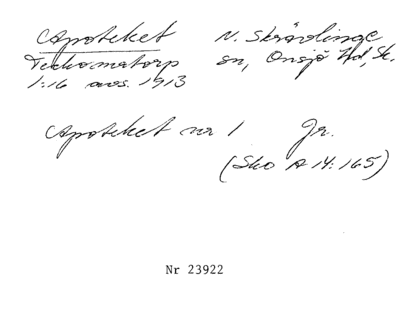 Apoteket N. Skrävlinge
Teckomatorp sn, Onsjö Hd, Sk.
1:16 avs. 1913
Apoteket nr 1 Jr.
(Sko A 14:165)
Nr 23922